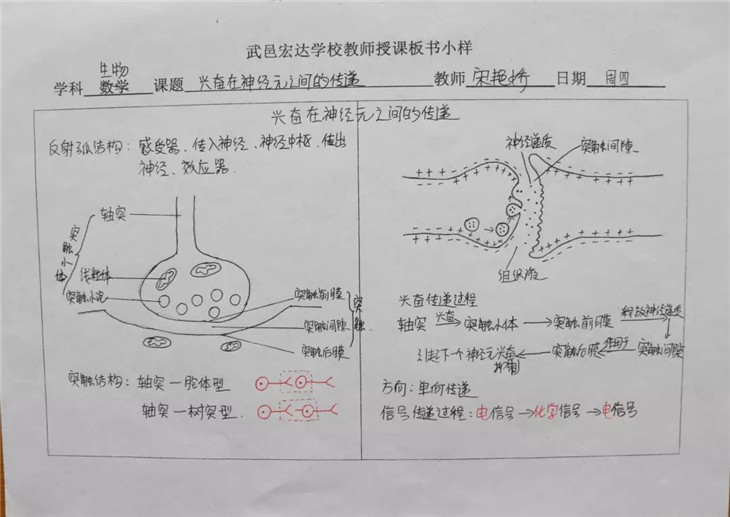 武邑宏达学校教师授课板书小样
生物
学科 数学 课题 兴奋在神经元之间的传递 教师 宋艳娇 日期 周四
兴奋在神经元之间的传递
反射弧结构：感受器、传入神经、神经中枢、传出
神经、效应器.
轴突
突触小体
线粒体
突触小泡
突触前膜
突触间隙
突触后膜
突触
突触结构：轴突—胞体型
轴突—树突型.
神经递质
突触间隙
组织液
兴奋传递过程
轴突 兴奋→ 突触小体 → 突触前膜 释放神经递质→
引起下个神经元兴奋 ← 突触后膜 ← 作用于 突触间隙
抑制
方向：单向传递
信号传递过程：电信号→化学信号→电信号